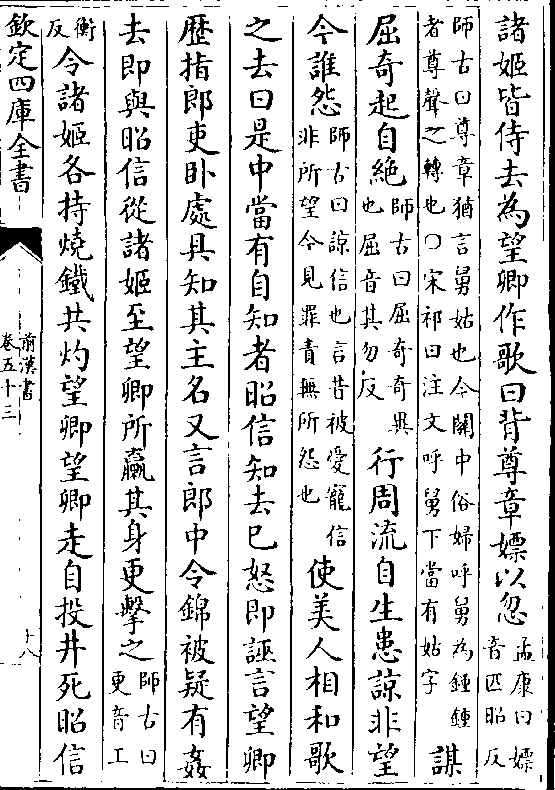 諸姬皆侍去為望卿作歌曰背尊章嫖以忽孟康曰嫖音匹昭反
師古曰尊章猶言舅姑也今關中俗婦呼舅為鍾鍾者尊聲之轉也○宋祁曰注文呼舅下當有姑字謀
屈奇起自絶師古曰屈奇奇異也屈音其勿反行周流自生患諒非望
今誰怨師古曰諒信也言昔被愛寵信非所望今見罪責無所怨也使美人相和歌
之去曰是中當有自知者昭信知去已怒即誣言望卿
歴指郎吏卧處具知其主名又言郎中令錦被疑有姦
去即與昭信從諸姬至望卿所臝其身更擊之師古曰更音工
衡反令諸姬各持燒鐵共灼望卿望卿走自投井死昭信
欽定四庫全書
前漢書
卷五十三
十八